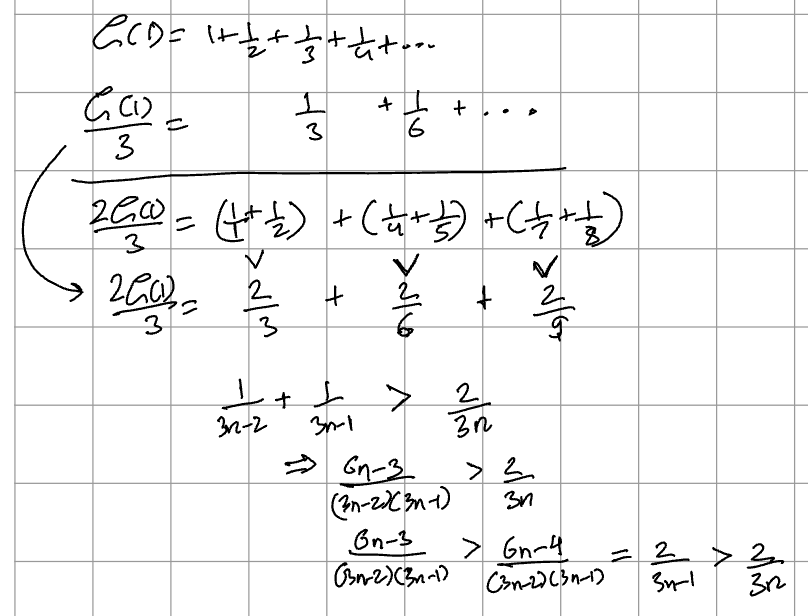 ζ(1) = 1 + 1/2 + 1/3 + 1/4 + ...
ζ(1)/3 = 1/3 + 1/6 + ...
2ζ(1)/3 = (1/1 + 1/2) + (1/4 + 1/5) + (1/7 + 1/8)
∨ ∨ ∨
2ζ(1)/3 = 2/3 + 2/6 + 2/9
1/(3n-2) + 1/(3n-1) > 2/(3n)
⇒ (6n-3)/((3n-2)(3n-1)) > 2/(3n)
(6n-3)/((3n-2)(3n-1)) > (6n-4)/((3n-2)(3n-1)) = 2/(3n-1) > 2/(3n)